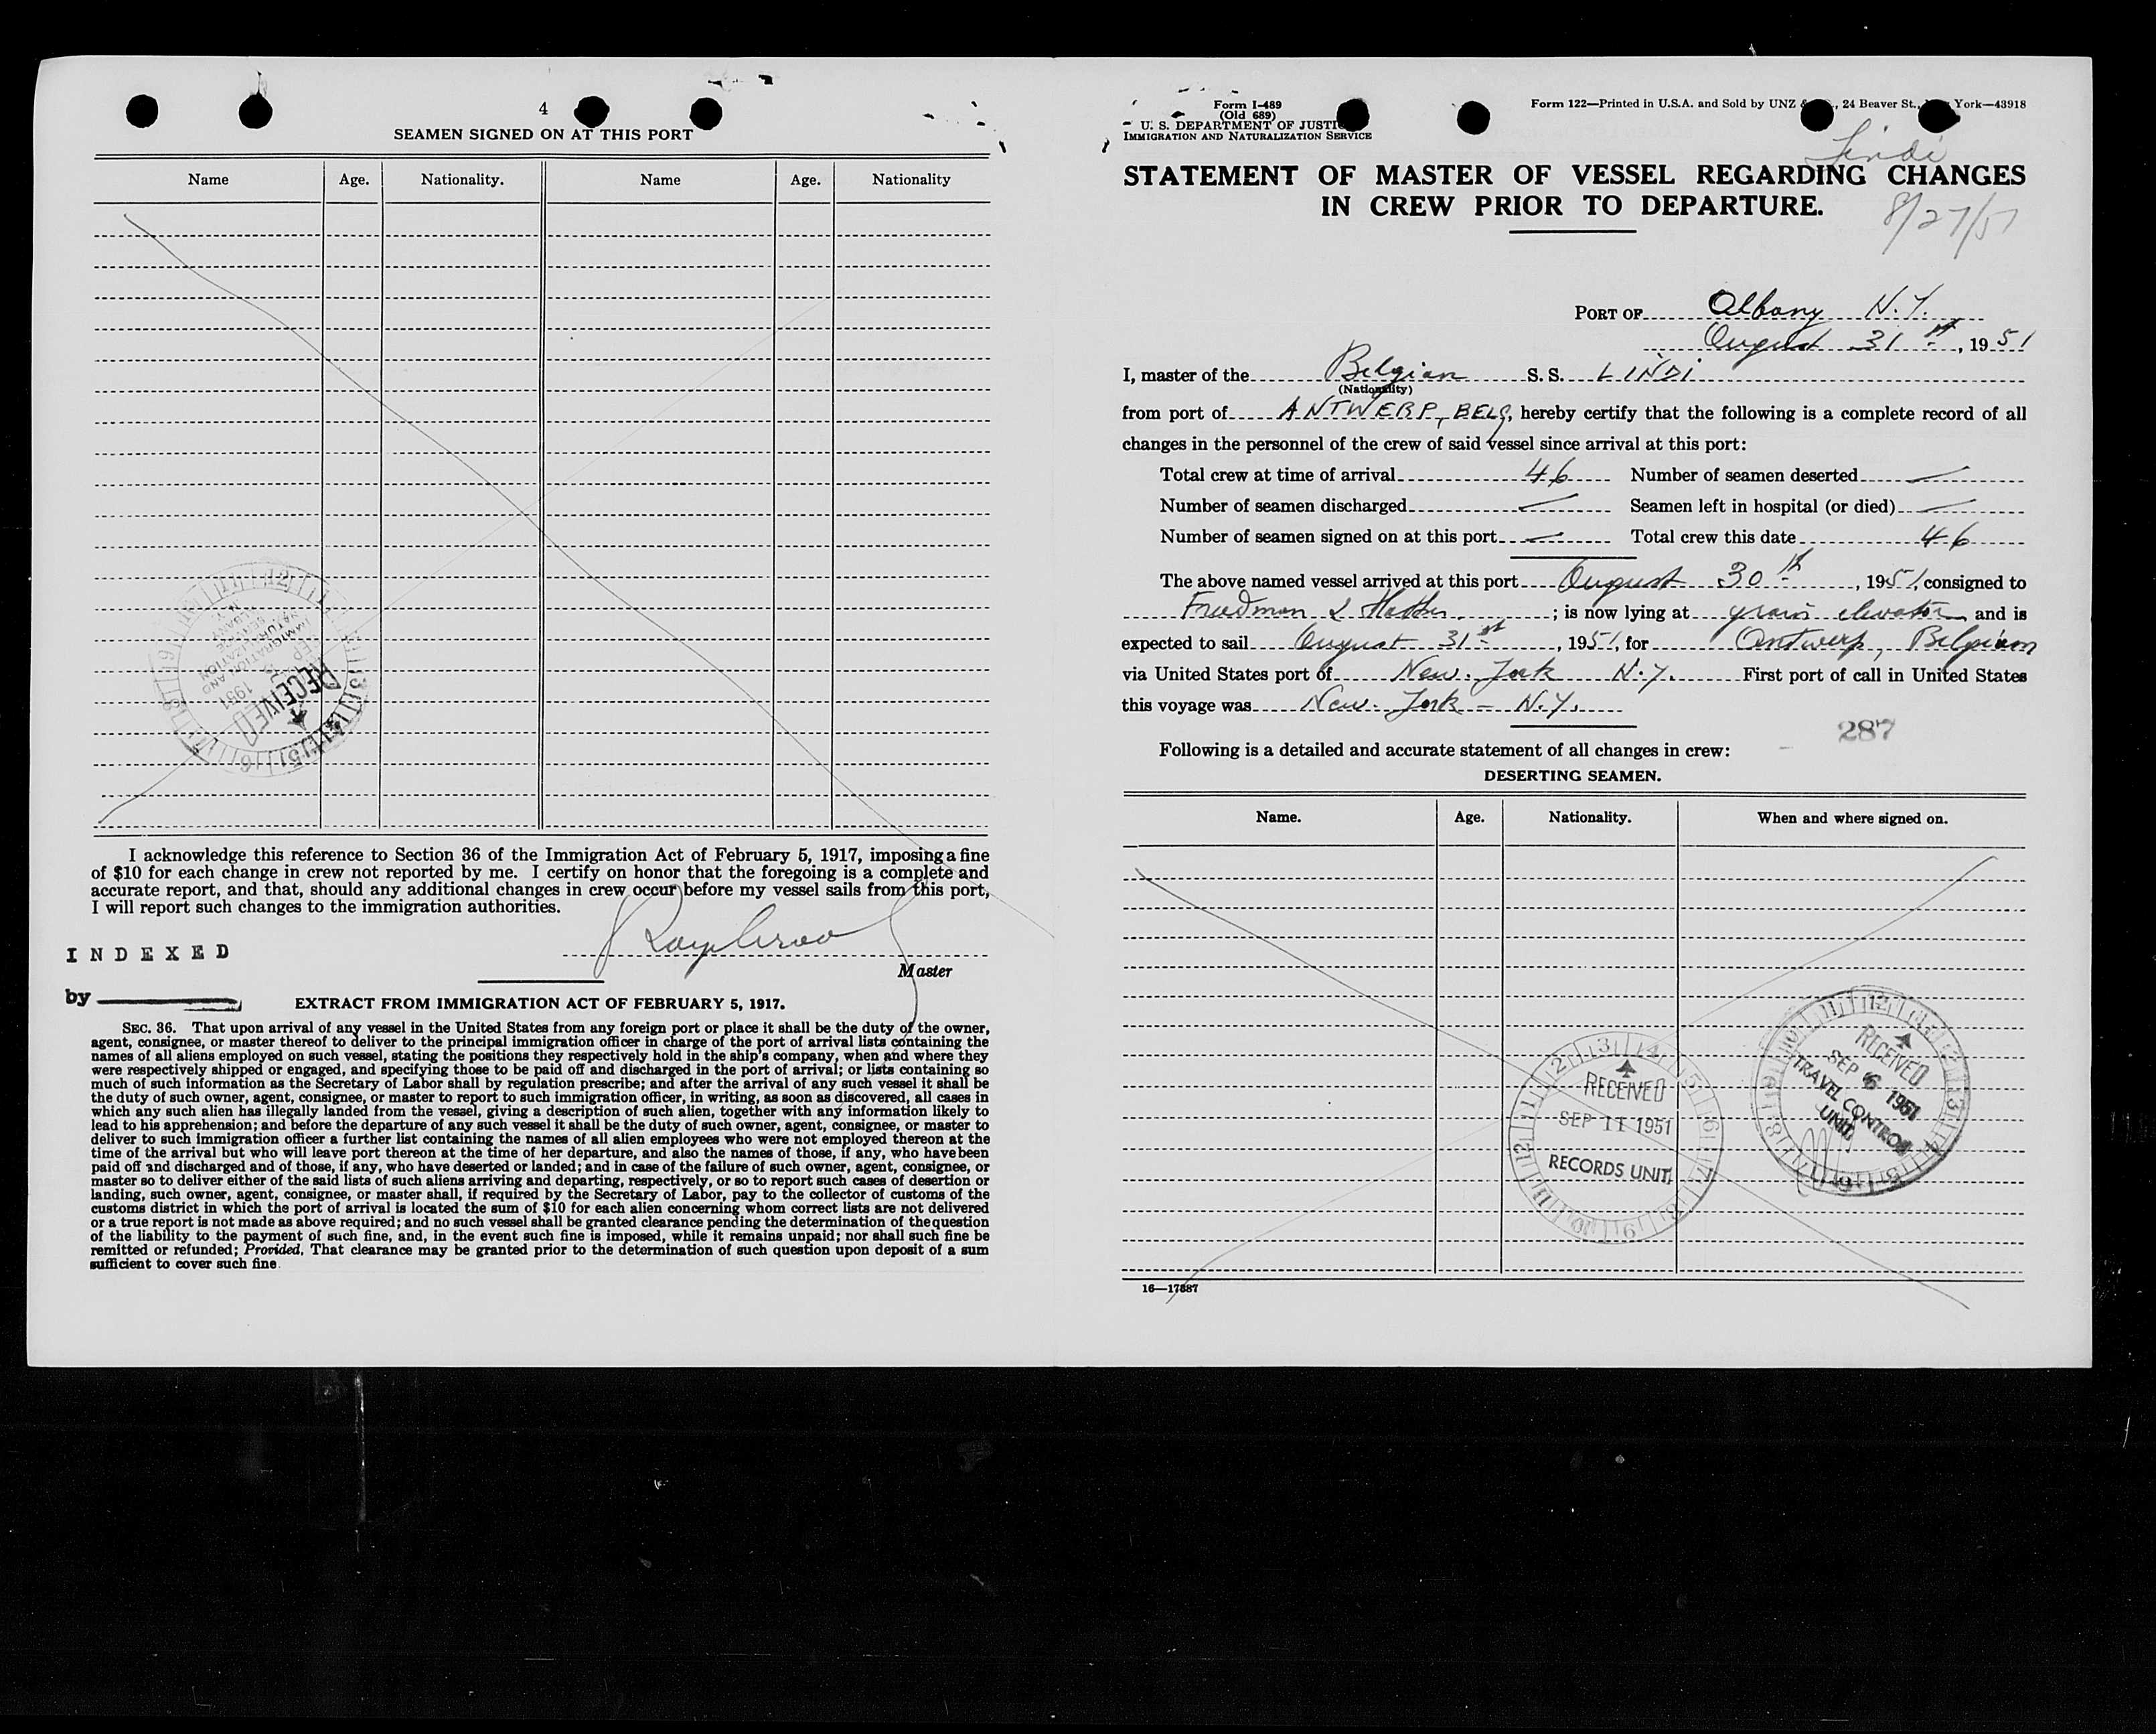 4
SEAMEN SIGNED ON AT THIS PORT
Name Age. Nationality. Name Age. Nationality
RECEIVED
1951
IMMIGRATION AND
NATURALIZATION
SERVICE
I acknowledge this reference to Section 36 of the Immigration Act of February 5, 1917, imposing a fine
of $10 for each change in crew not reported by me. I certify on honor that the foregoing is a complete and
accurate report, and that, should any additional changes in crew occur before my vessel sails from this port,
I will report such changes to the immigration authorities.
INDEXED
Master
by
EXTRACT FROM IMMIGRATION ACT OF FEBRUARY 5, 1917.
SEC. 36. That upon arrival of any vessel in the United States from any foreign port or place it shall be the duty of the owner,
agent, consignee, or master thereof to deliver to the principal immigration officer in charge of the port of arrival lists containing the
names of all aliens employed on such vessel, stating the positions they respectively hold in the ship's company, when and where they
were respectively shipped or engaged, and specifying those to be paid off and discharged in the port of arrival; or lists containing so
much of such information as the Secretary of Labor shall by regulation prescribe; and after the arrival of any such vessel it shall be
the duty of such owner, agent, consignee, or master to report to such immigration officer, in writing, as soon as discovered, all cases in
which any such alien has illegally landed from the vessel, giving a description of such alien, together with any information likely to
lead to his apprehension; and before the departure of any such vessel it shall be the duty of such owner, agent, consignee, or master to
deliver to such immigration officer a further list containing the names of all alien employees who were not employed thereon at the
time of the arrival but who will leave port thereon at the time of her departure, and also the names of those, if any, who have been
paid off and discharged and of those, if any, who have deserted or landed; and in case of the failure of such owner, agent, consignee, or
master so to deliver either of the said lists of such aliens arriving and departing, respectively, or so to report such cases of desertion or
landing, such owner, agent, consignee, or master shall, if required by the Secretary of Labor, pay to the collector of customs of the
customs district in which the port of arrival is located the sum of $10 for each alien concerning whom correct lists are not delivered
or a true report is not made as above required; and no such vessel shall be granted clearance pending the determination of the question
of the liability to the payment of such fine, and, in the event such fine is imposed, while it remains unpaid; nor shall such fine be
remitted or refunded; Provided, That clearance may be granted prior to the determination of such question upon deposit of a sum
sufficient to cover such fine
Form I-489
(Old 689)
U. S. DEPARTMENT OF JUSTI
IMMIGRATION AND NATURALIZATION SERVICE
Form 122—Printed in U.S.A. and Sold by UNZ & , 24 Beaver St., York—43918
Lindi
STATEMENT OF MASTER OF VESSEL REGARDING CHANGES
IN CREW PRIOR TO DEPARTURE.
8/27/51
PORT OF Albany N.Y.
August 31st, 1951
I, master of the Belgian S. S. LINDI
(Nationality)
from port of ANTWERP, BELG, hereby certify that the following is a complete record of all
changes in the personnel of the crew of said vessel since arrival at this port:
Total crew at time of arrival 46 Number of seamen deserted —
Number of seamen discharged — Seamen left in hospital (or died) —
Number of seamen signed on at this port — Total crew this date 46
The above named vessel arrived at this port August 30th, 1951, consigned to
; is now lying at grain elevator and is
expected to sail August 31st, 1951, for Antwerp, Belgium
via United States port of New York N.Y. First port of call in United States
this voyage was New York - N.Y.
287
Following is a detailed and accurate statement of all changes in crew:
DESERTING SEAMEN.
Name. Age. Nationality. When and where signed on.
RECEIVED
SEP 11 1951
RECORDS UNIT
RECEIVED
SEP 6 1951
TRAVEL CONTROL
UNIT
16—17887